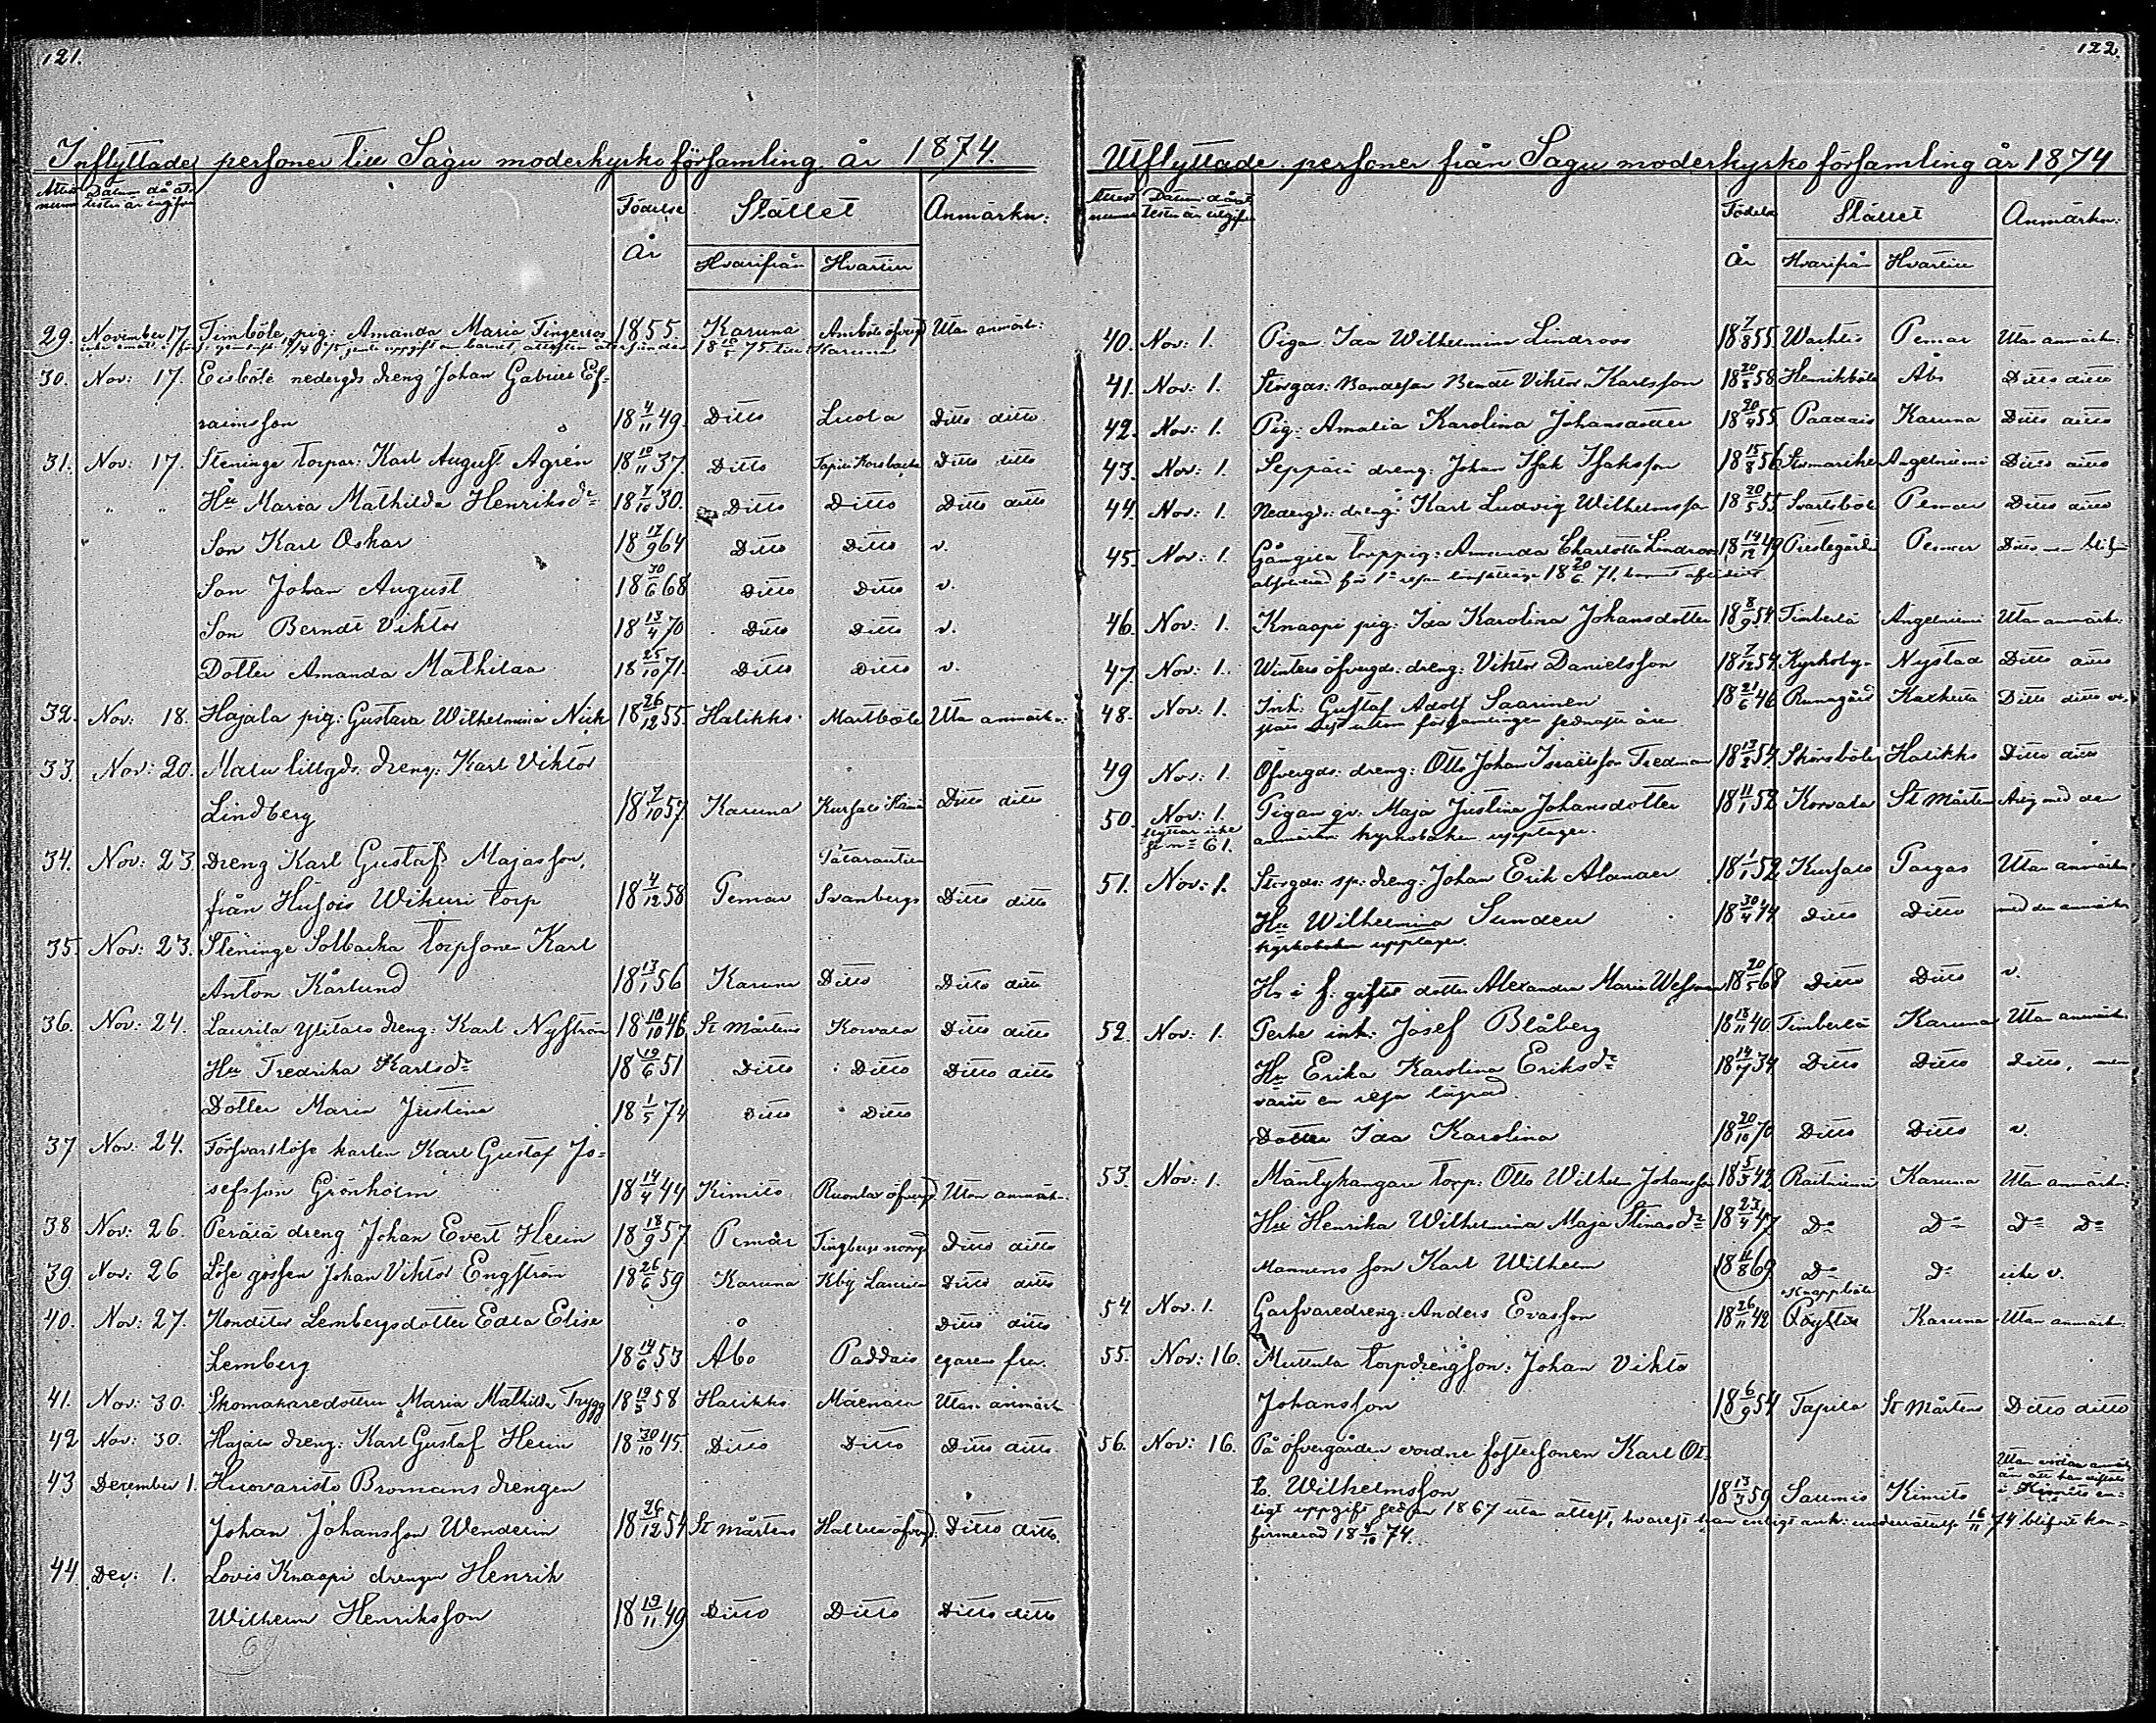 121.
Inflyttade personer till Sagu moderkyrko församling år 1874.
Attest numr Datum då attesten är ingifven Födelse År Stället Anmärkn:
Hvarifrån Hvartill
29. November 17. Timböle pig: Amanda Maria Fingerroos 1855. Karuna Amböle öfvergd Utan anmärk:
30. Nov: 17. Eisböle nedergds dreng Johan Gabriel Ef=
raimsson 18 4/11 49. Ditto Lucola Ditto ditto
31. Nov: 17. Steninge torpar: Karl August Agrén 18 10/11 37. Ditto Tapila Korsbacka Ditto ditto
" " Hu Maria Mathilda Henriksdr 18 7/10 30. Ditto Ditto Ditto ditto
Son Karl Oskar 18 17/9 64 Ditto Ditto v.
Son Johan August 18 30/6 68 Ditto Ditto v.
Son Berndt Viktor 18 13/4 70 Ditto Ditto v.
Dotter Amanda Mathilda 18 25/10 71. Ditto Ditto v.
32. Nov: 18. Hajala pig: Gustava Wilhelmina Nick 18 26/12 55. Halikko Martböle Utan anmärkn:
33. Nov: 20. Malu lillgds dreng: Karl Viktor
Lindberg 18 7/10 57 Karuna Kursalo Ditto ditto
34. Nov: 23. Dreng Karl Gustaf Majasson,
från Husois Wikuri torp 18 4/12 58 Pemar Svanbergs Ditto ditto
35. Nov: 23. Steninge Solbacka torpsonen Karl
Anton Kårlund 18 13/1 56 Karuna Ditto Ditto ditto
36. Nov: 24. Laurila Ylitalo dreng: Karl Nyström 18 10/10 46 St Mårtens Korvala Ditto ditto
Hu Fredrika Karlsdr 18 19/6 51 Ditto Ditto Ditto ditto
Dotter Maria Justina 18 1/5 74 Ditto Ditto
37 Nov: 24. Försvarslöse karlen Karl Gustaf Jo=
sefsson Grönholm 18 14/4 44 Kimito Ruonla öfvergd. Utan anmärk.
38 Nov: 26. Peräiä dreng Johan Evert Helin 18 18/9 57 Pemår Tingbergs norrgd Ditto ditto
39 Nov: 26 Löse gossen Johan Viktor Engström 18 26/6 59 Karuna Kby Laurila Ditto ditto
40. Nov: 27. Konditor Lembergsdotter Edla Elise Ditto ditto
Lemberg 18 14/6 53 Åbo Paddais egaren fru.
41. Nov: 30. Skomakaredottern Maria Mathilda Trygg 18 19/5 58 Halikko Mäenala Utan anmärk
42 Nov: 30. Hajala dreng: Karl Gustaf Helin 18 30/10 45. Ditto Ditto Ditto ditto
43 December 1. Huovaristo Bromans drengen
Johan Johansson Wendelin 18 26/12 54 St Mårtens Hallela öfvergd. Ditto ditto.
44 Dec: 1. Lovis Knaapi drengen Henrik
Wilhelm Henriksson 18 19/11 49 Ditto Ditto Ditto ditto
69
122.
Utflyttade personer från Sagu moderkyrko församling år 1874
Attest numr Datum då attesten är utgifven Födelse År Stället Anmärkn:
Hvarifrån Hvartill
40. Nov: 1. Pigan Ida Wilhelmina Lindroos 18 7/8 55. Wachtis Pemar Utan anmärkn:
41. Nov: 1. Storgds: Bondeson Berndt Viktor Karlsson 18 20/2 58 Henriksböle Åbo Ditto ditto
42. Nov: 1. Pig: Amalia Karolina Johansdotter 18 20/4 55 Paddais Karuna Ditto ditto
43. Nov: 1. Seppäiä dreng: Johan Isak Isaksson 18 15/8 56 Stormarike Angelniemi Ditto ditto
44. Nov: 1. Nedergds: dreng: Karl Ludvig Wilhelmsson 18 20/5 55 Svartsböle Pemar Ditto ditto
45. Nov: 1. Gångila torppig: Amanda Charlotta Lindroos 18 14/12 49 Prestegården Pemar Ditto men blifvit
absolverad för 1a resan lönskaläge 18 20/6 71, barnet aflidit
46. Nov: 1. Knaapi pig: Ida Karolina Johansdotter 18 8/9 54 Timberlä Angelniemi Utan anmärkn:
47 Nov: 1. Winters öfvergds: dreng: Viktor Danielsson 18 7/12 54. Kyrkoby. Nystad Ditto ditto
48. Nov: 1. Inh: Gustaf Adolf Saarinen 18 21/6 46 Runagård Kakkerta Ditto ditto
49 Nov: 1. Öfvergds: dreng: Otto Johan Israelsson Fredman 18 13/2 54 Skörsböle Halikko Ditto ditto
50. Nov: 1. Pigan qv. Maja Justina Johansdotter 18 11/1 52 Korvala St Mårten Arlig med den
flyttar icke se no 61. anmärkn: kyrkoboken upptager.
51. Nov: 1. Storgds: sp: dreng: Johan Erik Alander 18 1/1 52 Kursalo Pargas Utan anmärkn
Hu Wilhelmina Sundell 18 30/4 44 Ditto Ditto med den anmärkn
kyrkoboken upptager.
Hs i f. giftet dotter Alexandra Maria Wessman 18 20/5 68 Ditto Ditto v.
52. Nov: 1. Perke inh: Josef Blåberg 18 18/11 40. Timberlä Karuna Utan anmärk:
Hu Erika Karolina Eriksdr 18 14/7 34 Ditto Ditto Ditto, men
varit en resa lägrad.
Dotter Ida Karolina 18 20/10 70 Ditto Ditto v.
53. Nov: 1. Mäntykangare torp: Otto Wilhelm Johansson 18 5/3 42. Raitniemi Karuna Utan anmärkn:
Hu Henrika Wilhelmina Maja Stinasdr 18 23/4 47 Do Do Do Do
Mannens son Karl Wilhelm 18 11/8 69 Do Do icke v.
54. Nov. 1. Garfvaredreng: Anders Evasson 18 26/11 42 Knappböle Karuna Utan anmärk:
55. Nov: 16. Muttula torpdrengson: Johan Viktor
Johansson 18 6/9 54 Tapila St Mårtens Ditto ditto
56. Nov: 16. På öfvergården vordne fostersonen Karl Ot= Utan vidare anmärk
to. Wilhelmsson 18 13/3 59 Saumis Kimito än att han vistats i Kimito en=
ligt uppgift sedan 1867 utan attest, hvarest han enligt ank: underrättelse 16/11 74 blifvit kon=
firmerad 18 4/10 74.